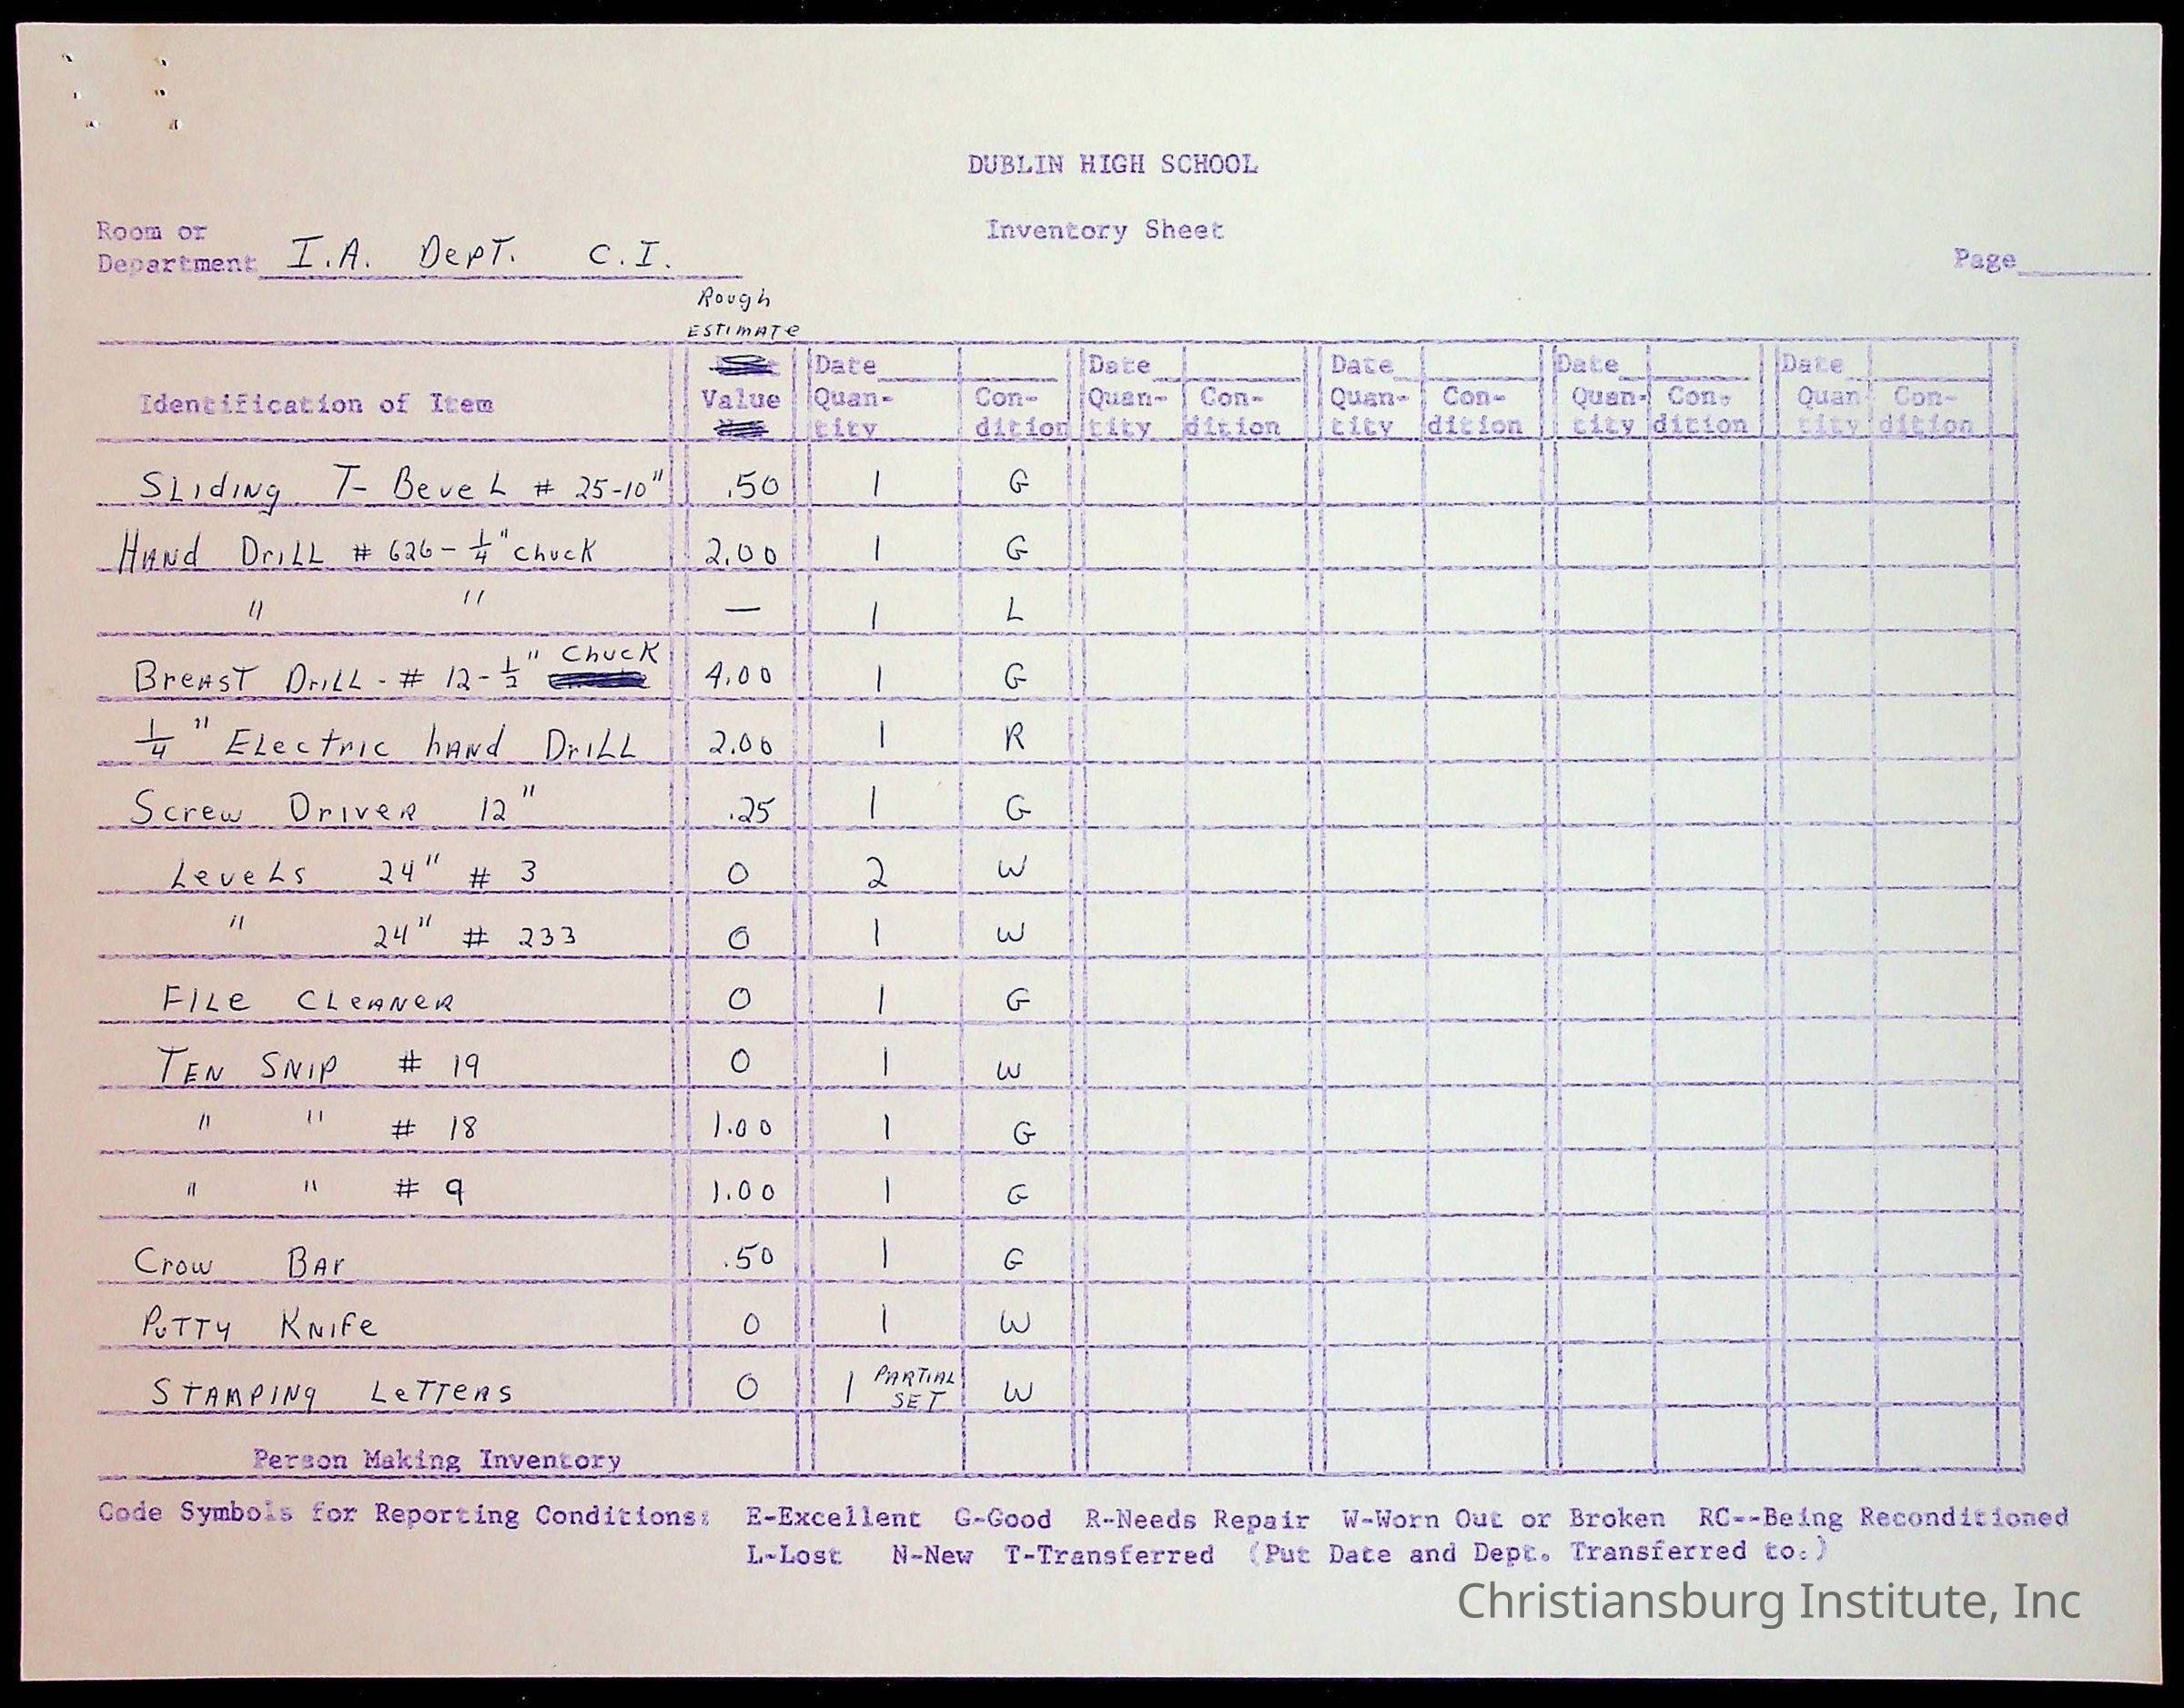 DUBLIN HIGH SCHOOL
Inventory Sheet
Room or
Department I.A. Dept. C.I.
Page
Rough
Estimate
Date Date Date Date Date
Identification of Item Value Quan- Con- Quan- Con- Quan- Con- Quan- Con- Quan- Con-
tity dition tity dition tity dition tity dition tity dition
Sliding T- Bevel # 25-10" .50 1 G
Hand Drill # 626- 1/4" chuck 2.00 1 G
" " — 1 L
Breast Drill - # 12- 1/2" Chuck 4.00 1 G
1/4" Electric hand Drill 2.00 1 R
Screw Driver 12" .25 1 G
Levels 24" # 3 0 2 W
" 24" # 233 0 1 W
File Cleaner 0 1 G
Ten Snip # 19 0 1 W
" " # 18 1.00 1 G
" " # 9 1.00 1 G
Crow Bar .50 1 G
Putty Knife 0 1 W
Stamping Letters 0 1 Partial Set W
Person Making Inventory
Code Symbols for Reporting Conditions: E-Excellent G-Good R-Needs Repair W-Worn Out or Broken RC--Being Reconditioned
L-Lost N-New T-Transferred (Put Date and Dept. Transferred to.)
Christiansburg Institute, Inc